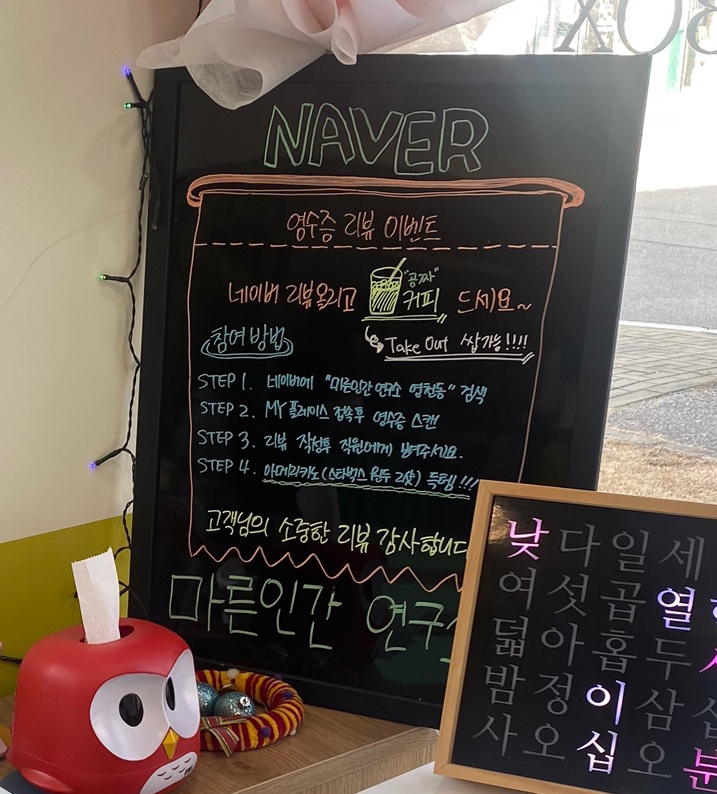 BOX
NAVER
영수증 리뷰 이벤트
네이버 리뷰올리고 "공짜" 커피 드세요~
Take Out 쌉가능!!!!
참여방법
STEP 1. 네이버에 "마른인간연구소 영천동" 검색
STEP 2. MY플레이스 접속후 영수증 스캔
STEP 3. 리뷰 작성후 직원에게 보여주세요.
STEP 4. 아메리카노(스타벅스 원두 2샷) 득템!!!
고객님의 소중한 리뷰 감사합니다
마른인간 연구
낮 다 일 세
여 섯 곱 열
덟 아 홉 두
밤 정 이 삼
사 오 십 오 분